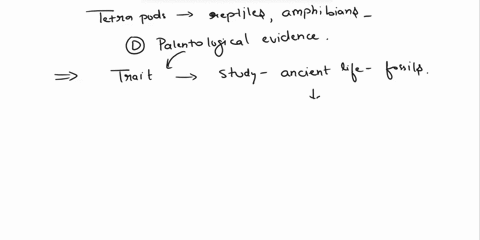 Tetra pods → reptiles, amphibians -
Ⓓ Palentological evidence.
⇒ Trait → Study - ancient life - fossils.
↓